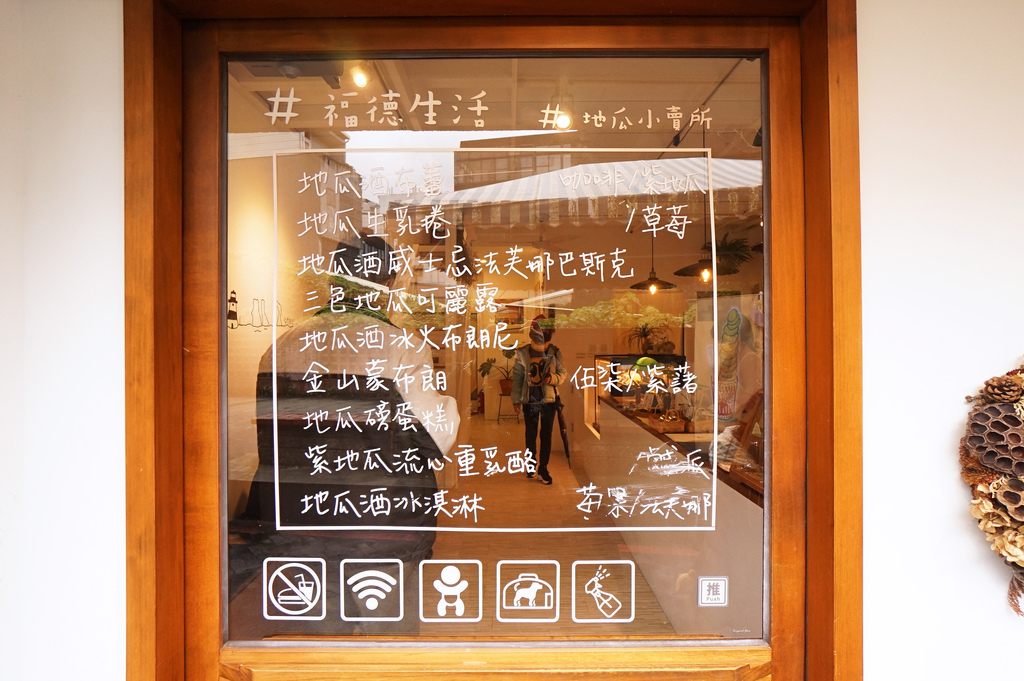 # 福德生活 # 地瓜小賣所
地瓜酒布蕾 咖啡/紫地瓜
地瓜生乳捲 /草莓
地瓜酒威士忌法芙娜巴斯克
三色地瓜可麗露
地瓜酒冰火布朗尼
金山蒙布朗 伍柒/紫藷
地瓜磅蛋糕
紫地瓜流心重乳酪
地瓜酒冰淇淋 /法芙娜
推
Push